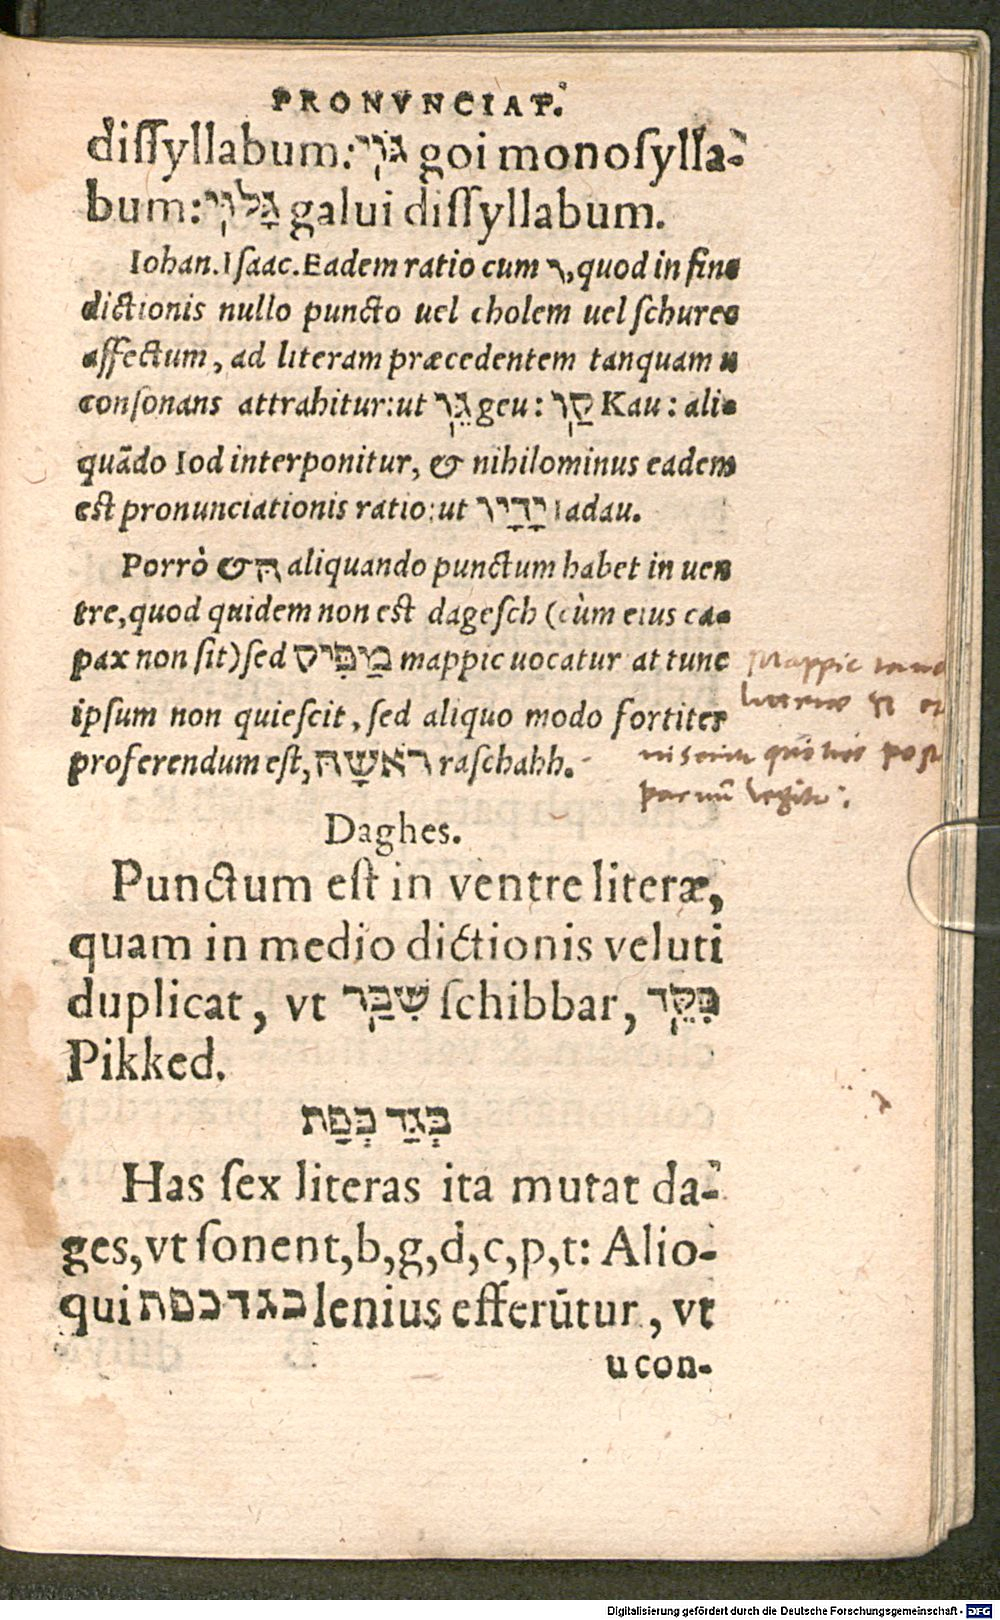 PRONVNCIAT.
diſſyllabum: גּוֹי goi monoſylla-
bum: גָּלוּי galui diſſyllabum.
Iohan. Iſaac. Eadem ratio cum ו, quod in fine
dictionis nullo puncto uel cholem uel ſchurec
affectum, ad literam præcedentem tanquam u
conſonans attrahitur: ut גֵּו geu: קַו Kau: ali-
quãdo Iod interponitur, & nihilominus eadem
est pronunciationis ratio: ut יָדָיו Iadau.
Porrò & הּ aliquando punctum habet in uen
tre, quod quidem non est dageſch (cùm eius ca-
pax non ſit) ſed מַפִּיק mappic uocatur at tunc
ipſum non quieſcit, ſed aliquo modo fortiter
proferendum est, רֹאשָׁהּ raſchahh.
Mappic
literæ ה et
post
legitur
Daghes.
Punctum eſt in ventre literæ,
quam in medio dictionis veluti
duplicat, vt שִׁבַּר ſchibbar, פִּקֵּד
Pikked.
בְּגַד כְּפַת
Has ſex literas ita mutat da-
ges, vt ſonent, b, g, d, c, p, t: Alio-
qui בגדכפת lenius efferũtur, vt
u con-
Digitalisierung gefördert durch die Deutsche Forschungsgemeinschaft - DFG